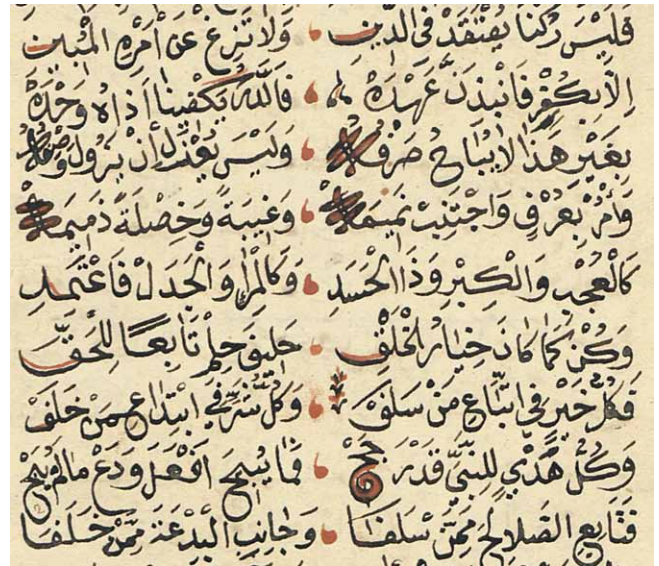 فَلَيْسَ رُكْنًا يُعْتَقَدْ فِي الدِّينِ وَلَا تَزِغْ عَنْ أَمْرِهِ الْمُبِينِ
إِلَّا بِكُفْرٍ فَانْبِذَنَّ عَهْدَهْ فَاللَّهُ يَكْفِينَا أَذَاهُ وَحْدَهْ
بِغَيْرِ هَذَا لَا يُبَاحُ صَرْفُهُ وَلَيْسَ يُعْزَلْ إِنْ يَزُولُ وَصْفُهُ
وَأْمُرْ بِعُرْفٍ وَاجْتَنِبْ نَمِيمَهْ وَغِيبَةً وَخَصْلَةً ذَمِيمَهْ
كَالْعُجْبِ وَالْكِبْرِ وَذَا الْحَسَدِ وَكَالْمِرَا وَالْجَدَلْ فَاعْتَمِدِ
وَكُنْ كَمَا كَانَ خِيَارُ الْخَلْقِ حَلِيفَ حِلْمٍ تَابِعًا لِلْحَقِّ
فَكُلُّ خَيْرٍ فِي اتِّبَاعِ مَنْ سَلَفْ وَكُلُّ شَرٍّ فِي ابْتِدَاعِ مَنْ خَلَفْ
وَكُلُّ هَدْيٍ لِلنَّبِيِّ قَدْ رَجَحْ فَمَا افْعَلْ وَدَعْ مَا لَمْ يُبَحْ
فَتَابِعِ الصَّالِحَ مِمَّنْ سَلَفَا وَجَانِبِ الْبِدْعَةَ مِمَّنْ خَلَفَا